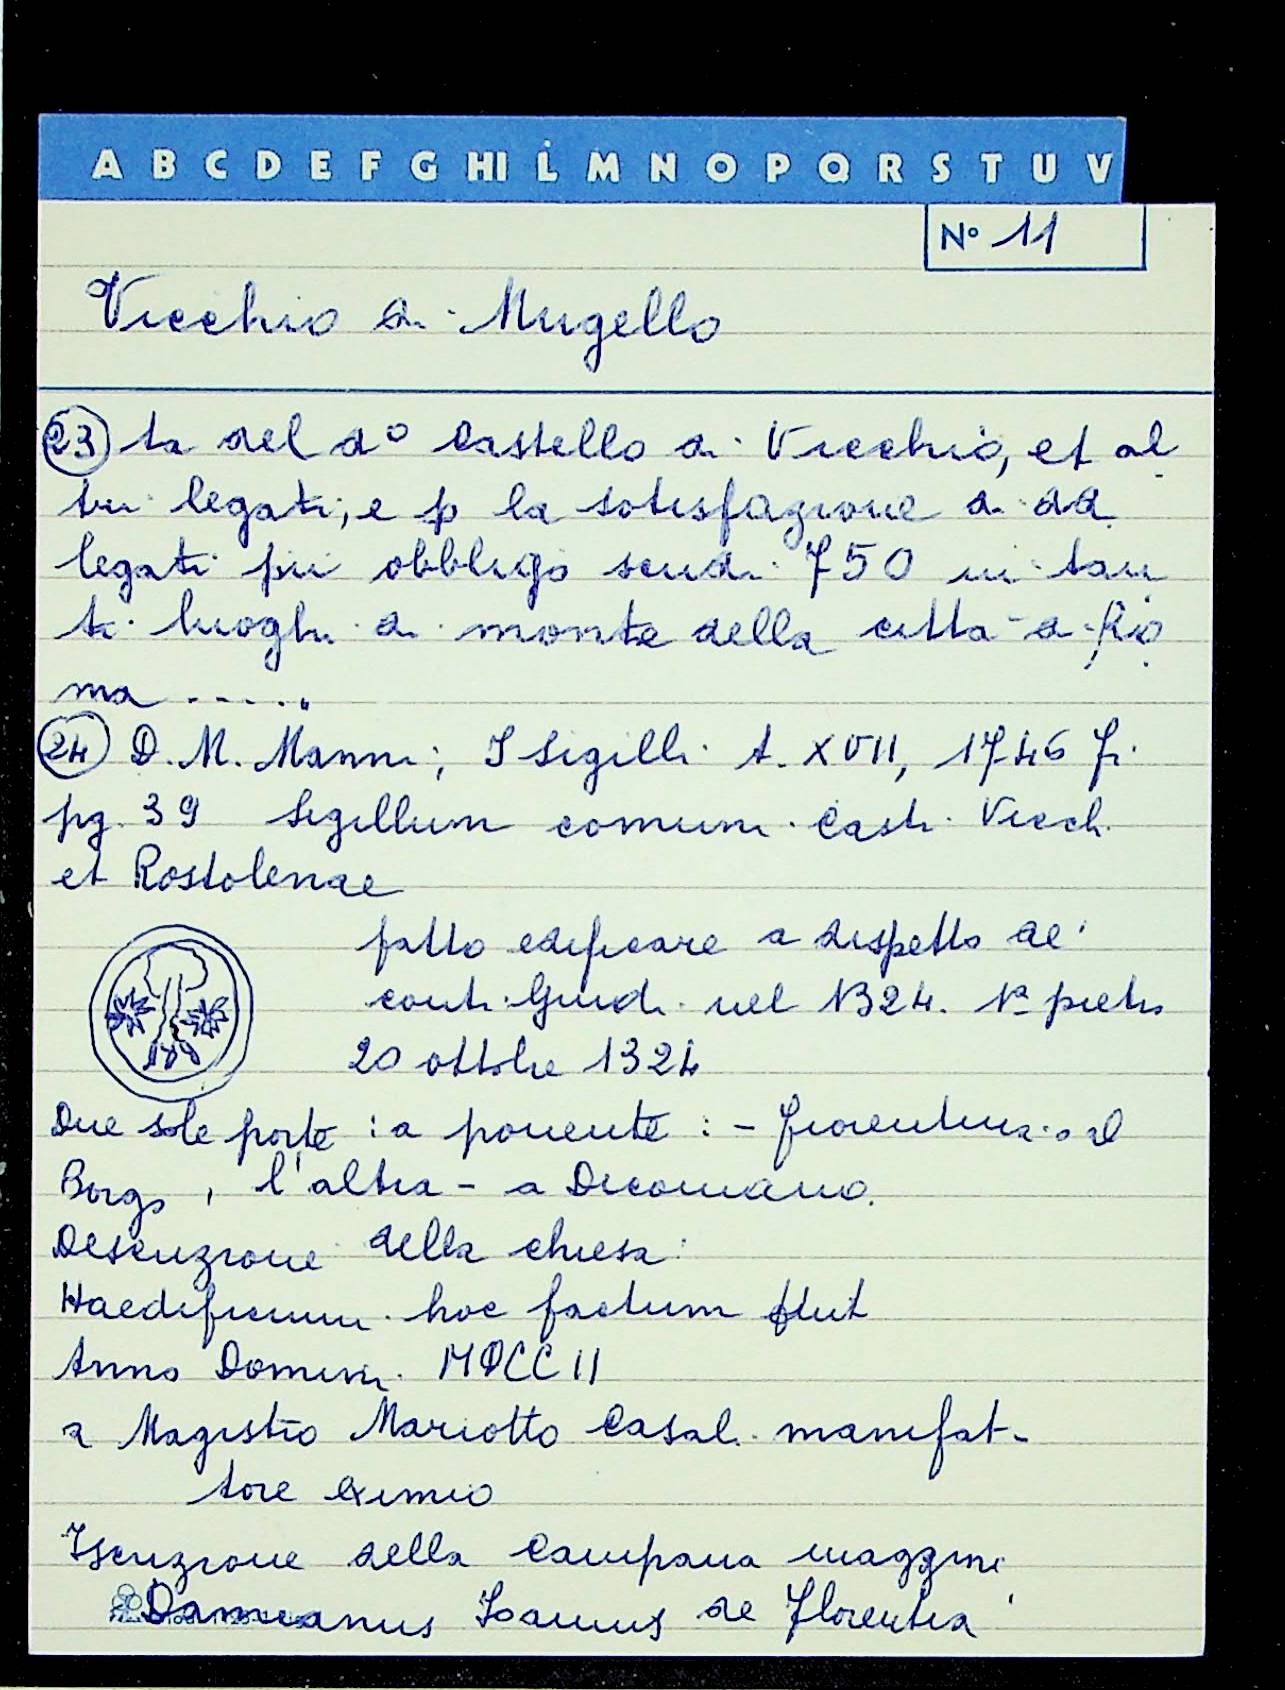 A B C D E F G HI L M N O P Q R S T U V
N° 11
Vicchio di Mugello
23 ta del d° Castello di Vicchio, et al
tri legati, e p la sotisfazione di dd
legati più obbligo scudi 750 in tan
ti luoghi di monte della città di Ro
ma .....
24 D. M. Manni, I Sigilli t. XVII, 1746 Fi
pg. 39 Sigillum comuni Casti Vicch
et Rostolenae
fatto edificare a dispetto de'
conti Guidi nel 1324. 1ª pietra
20 ottobre 1324
Due sole porte : a ponente : - fiorentina o al
Borgo, l'altra - a Dicomano.
Descrizione della chiesa:
Haedificium hoc factum fuit
Anno Domini MDCCII
a Magistro Mariotto Casali manifat-
tore eximio
Iscrizione della Campana maggiore
Damianus Ioannis de Florentia